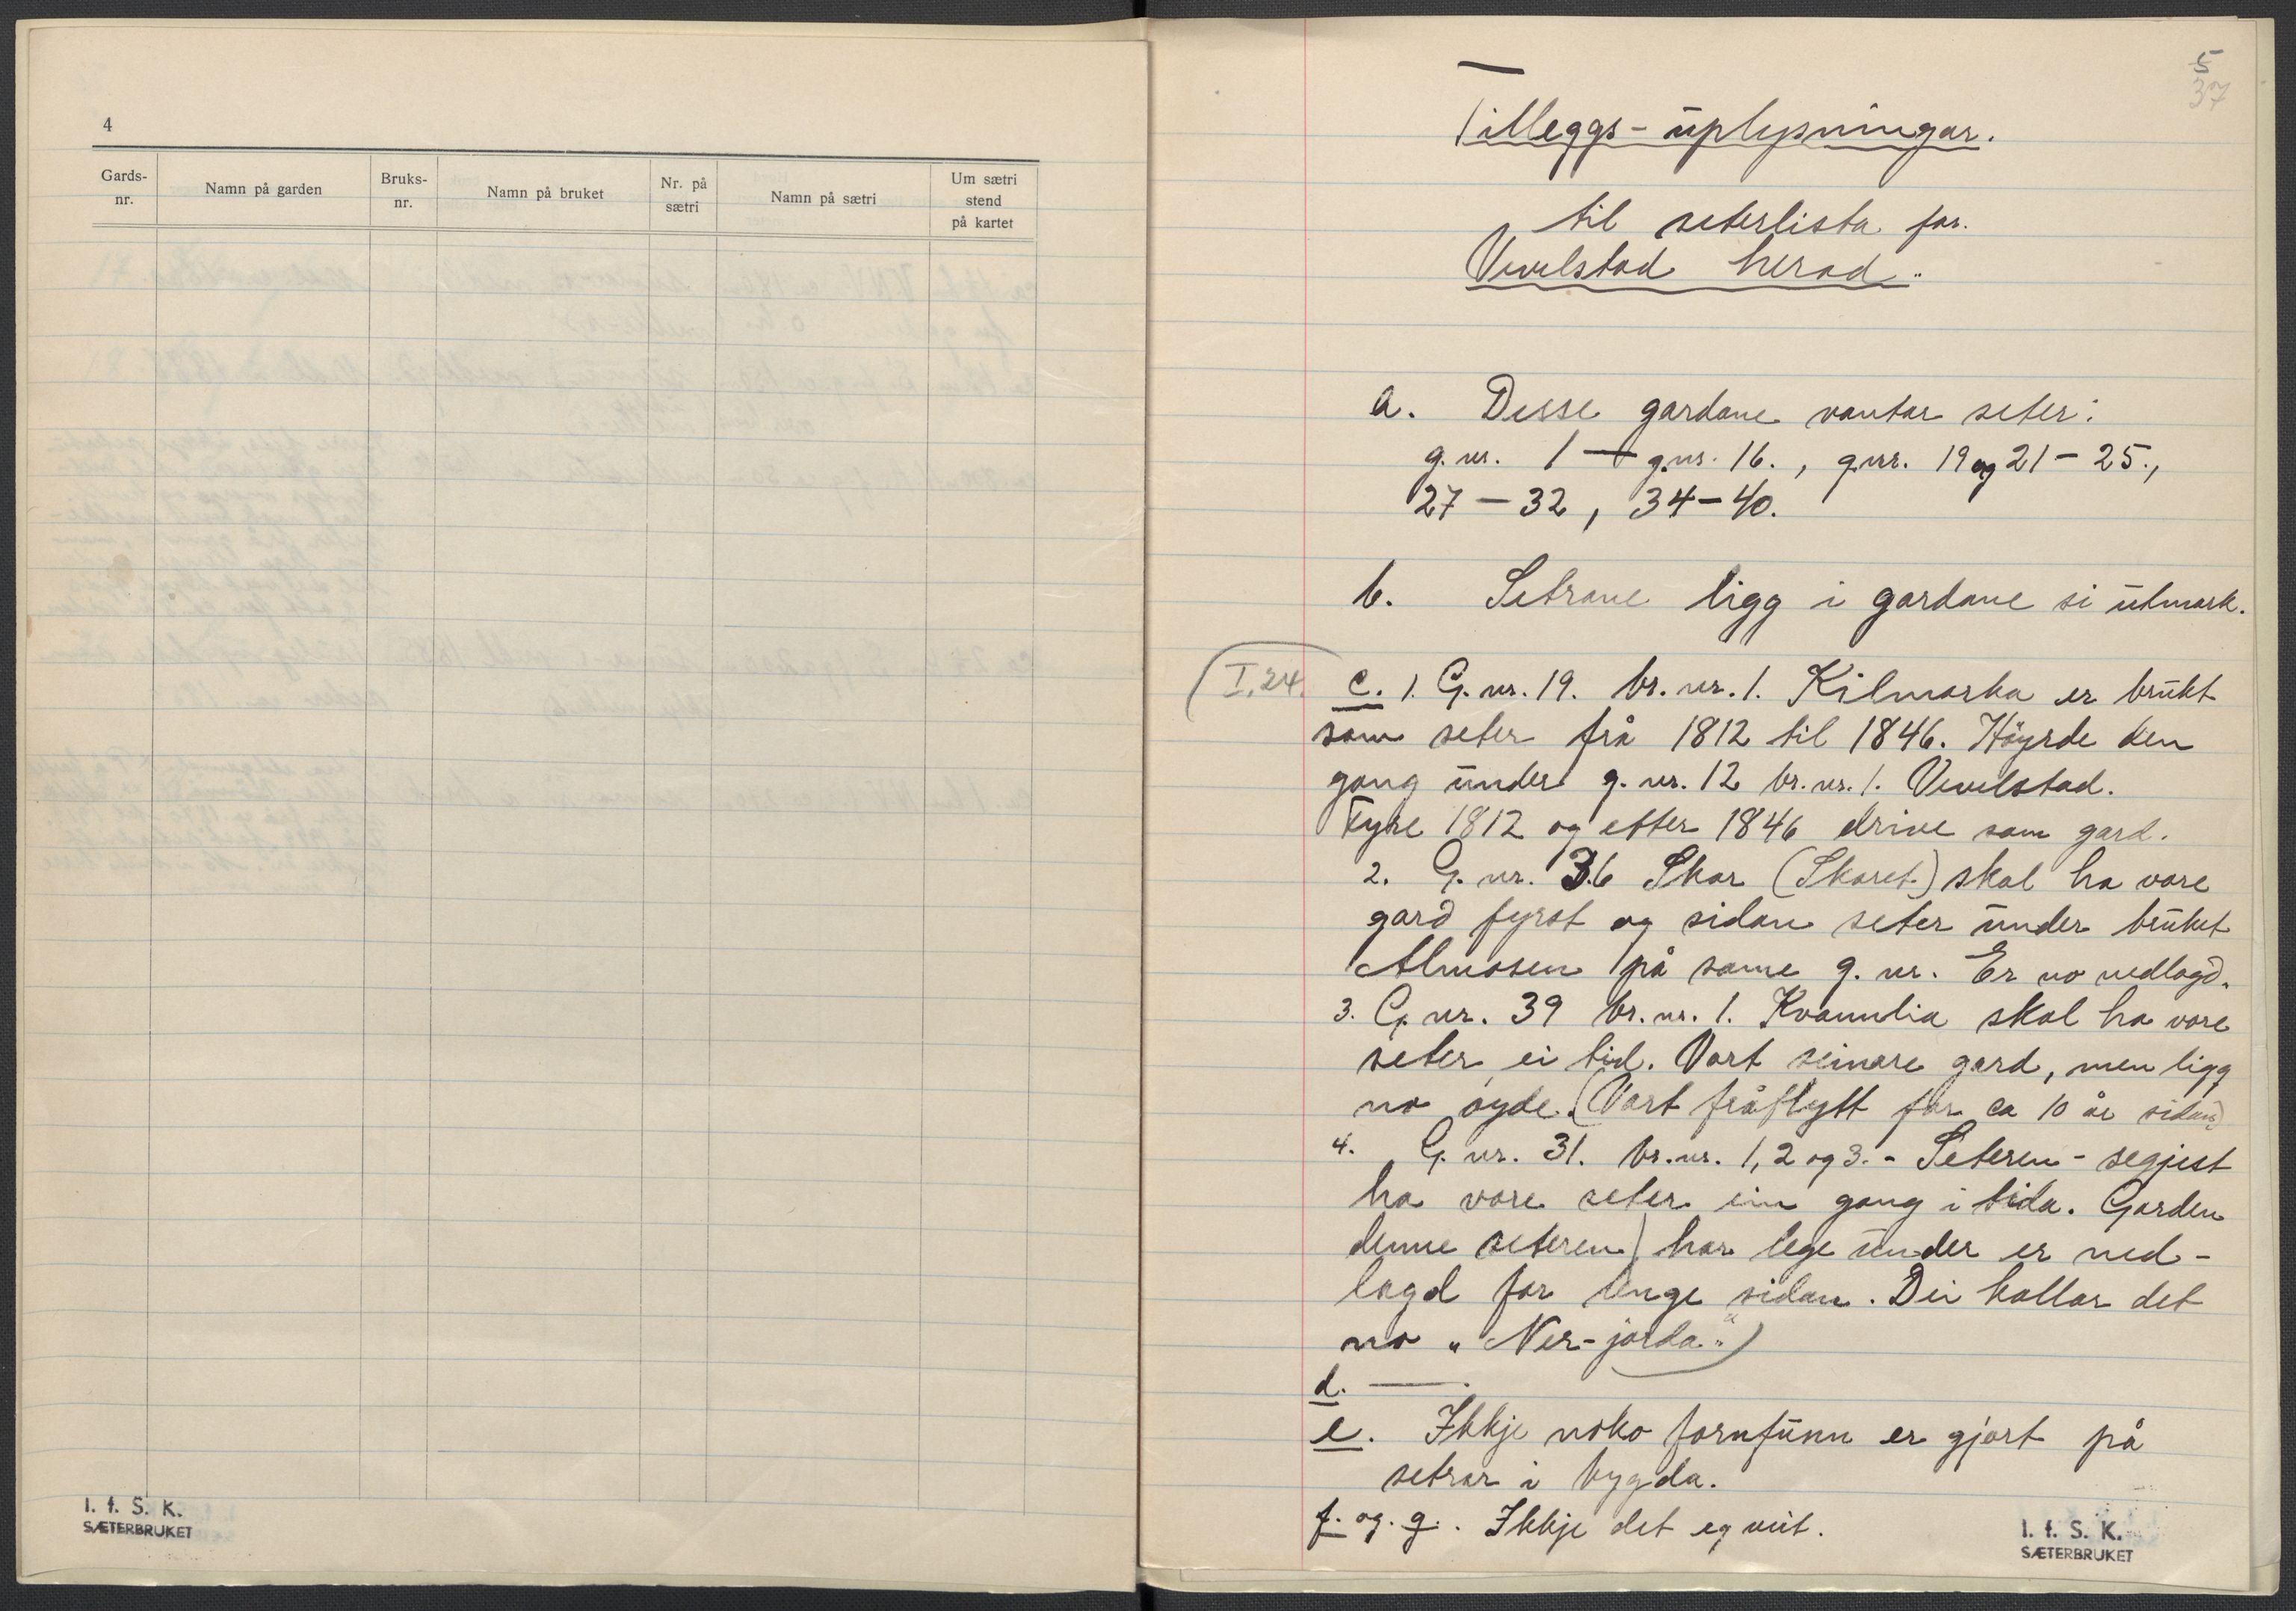 4
Gards-
nr.
Namn på garden
Bruks-
nr.
Namn på bruket
Nr. på
sætri
Namn på sætri
Um sætri
stend
på kartet
I. f. S. K.
SÆTERBRUKET
5
37
Tilleggs-uplysningar.
til seterlista for.
Vevelstad herad.
a. Desse gardane vantar seter:
g.nr. 1 — g.nr. 16., g.nr. 19 og 21 - 25.,
27 — 32, 34 - 40.
b. Setrane ligg i gardane si utmark.
I, 24. c. 1. G.nr. 19. br.nr. 1. Kilmarka er brukt
som seter frå 1812 til 1846. Høyrde den
gong under g.nr. 12 br.nr. 1. Vevelstad.
Fyre 1812 og etter 1846 drive som gard.
2. G.nr. 36 Skar (Skaret.) skal ha vore
gard fyrst og sidan seter under bruket
Almosen på same g.nr. Er no nedlagd.
3. G.nr. 39 br.nr. 1. Kvannlia skal ha vore
seter ei tid. Vart seinare gard, men ligg
no øyde. (Vart fråflytt for ca 10 år sidan)
4. G.nr. 31. br.nr. 1, 2 og 3. - Seteren - segjest
ha vore seter ein gong i tida. Garden
denne seteren) har lege under er ned-
lagd for lenge sidan. Dei kallar det
no „Ner-jorda“.)
d. —.
e. Ikkje noko fornfunn er gjort på
setrar i bygda.
f. og. g. Ikkje det eg veit.
I. f. S. K.
SÆTERBRUKET